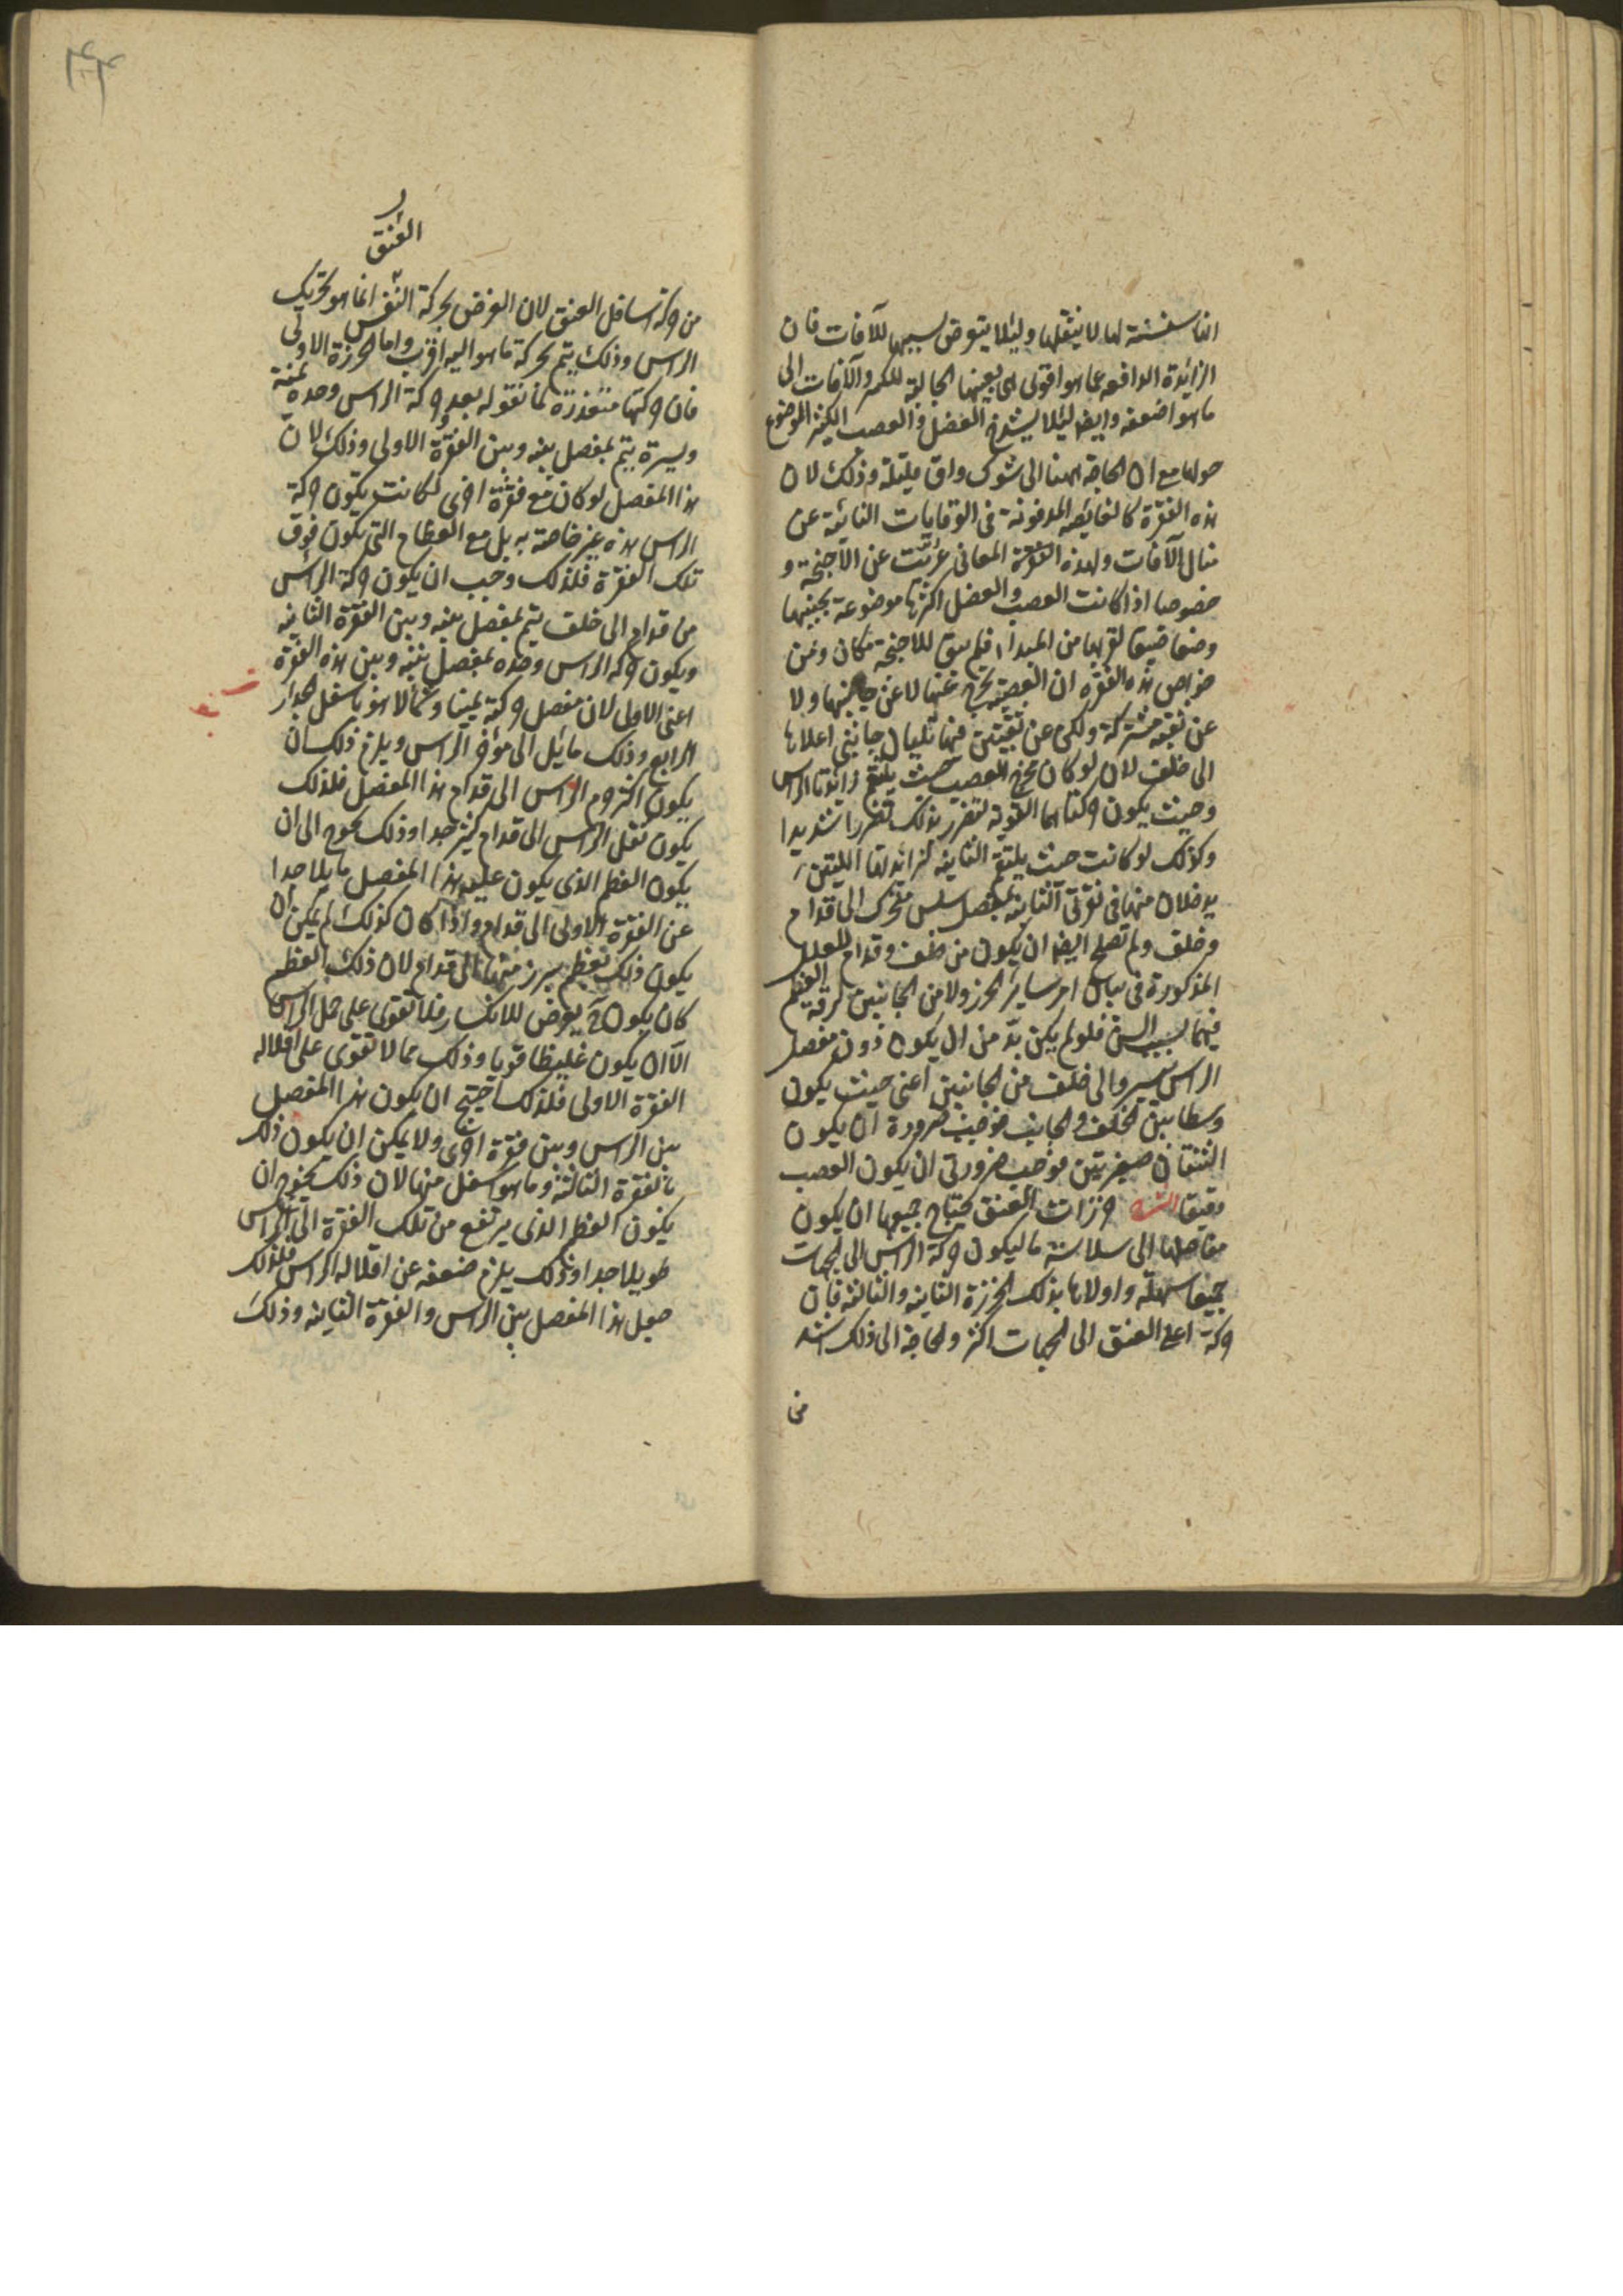 الناسفسنة لها لا ينثقلها ولئلا يتعرض بسببها للآفات فان
الزائدة الدافعه عما هو اقوى هى بعينها الجالبة للكسر والآفات الى
ما هو اضعف وايضا لئلا يشدخ العضل والعصب الكثير الموضوع
حولها مع ان الحاجة ههنا الى شوك واق قليلة وذلك لان
هذه الفقرة كالغائصة المدفونة فى الوقايات النائية عن
منال الآفات ولهذه المعانى عريت عن الاجنحة و
خصوصا اذا كانت العصب والعضل اكثرها موضوعة بجنبها
وضعا ضيقا لقربها من المبدأ فلم يبق للاجنحة مكان ومن
خواص هذه الفقرة ان العصبة تخرج عنها لا عن جانبيها ولا
عن ثقبة مشتركة ولكن عن ثقبتين فيها تليان جانبى اعلاها
الى خلف لانه لو كان مخرج العصب حيث يلتقم زائدتا الراس
وحيث يكون حركتاهما القوية لتضرر بذلك تضررا شديدا
وكذلك لو كانت حيث يلتقم الثانية لزائدتها اللتين
يدخلان منها فى نقرتى الثانية بمفصل سلس متحرك الى قدام
وخلف ولم تصلح ايضا ان يكون من خلف وقدام للعلل
المذكورة فى بيان امر سائر الخرز ولا من الجانبين لرقة العظم
فيهما بسبب السن فلم يكن بد من ان يكون دون مفصل
الراس بيسير والى خلف من الجانبين اعنى حيث يكون
وسطا بين الخلف والجانب فوجب ضرورة ان يكون
الثقبتان صغيرتين فوجب ضرورة ان يكون العصب
دقيقا الشرح خرزات العنق يحتاج جميعها ان يكون
مفاصلها الى سلاسة ما ليكون حركة الراس الى الجهات
جميعا سهلة واولاها بذلك الخرزة الثانية والثالثة فان
حركة اعلى العنق الى الجهات اكثر والحاجة الى ذلك اشد
من
العنق
من حركة اسافل العنق لان الغرض بحركة انما هو تحريك
الراس وذلك يتم بحركة ما هو اليه اقرب واما الخرزة الاولى
فان حركتها متعذرة لما نقوله بعد وحركة الراس وحده يمنة
ويسرة يتم بمفصل بينه وبين الفقرة الاولى وذلك لان
هذا المفصل لو كان مع فقرة اخرى لكانت يكون حركة
الراس هذه غير خاصة به بل مع العظام التى يكون فوق
تلك الفقرة فلذلك وجب ان يكون حركة الراس
من قدام الى خلف يتم بمفصل بينه وبين الفقرة الثانيه
ويكون حركة الراس وحده بمفصل بينه وبين هذه الفقرة
اعنى الاولى لان مفصل حركته يمينا وشمالا هو باسفل الجدار
الرابع وذلك مايل الى مؤخر الراس ويلزم ذلك ان
يكون اكثر جرم الراس الى قدام هذا المفصل فلذلك
يكون ثقل الراس الى قدام كثير جدا وذلك يحوج الى ان
يكون العظم الذى يكون عليه هذا المفصل مايلا جدا
عن الفقرة الاولى الى قدام واذا كان كذلك لم يمكن ان
يكون ذلك بعظم يبرز منها الى قدام لان ذلك العظم
كان يكون ح يعرض للانكسار فلا تقوى على حمل الراس
الا ان يكون غليظا قويا وذلك مما لا تقوى على اقلاله
الفقرة الاولى فلذلك احتيج ان يكون هذا المفصل
بين الراس وبين فقرة اخرى ولا يمكن ان يكون ذلك
بالفقرة الثالثة وما هو اسفل منها لان ذلك يحوج ان
يكون العظم الذى يرتفع من تلك الفقرة الى الراس
طويلا جدا وذلك يلزم ضعفه عن اقلاله الراس فلذلك
جعل هذا المفصل بين الراس والفقرة الثانيه وذلك